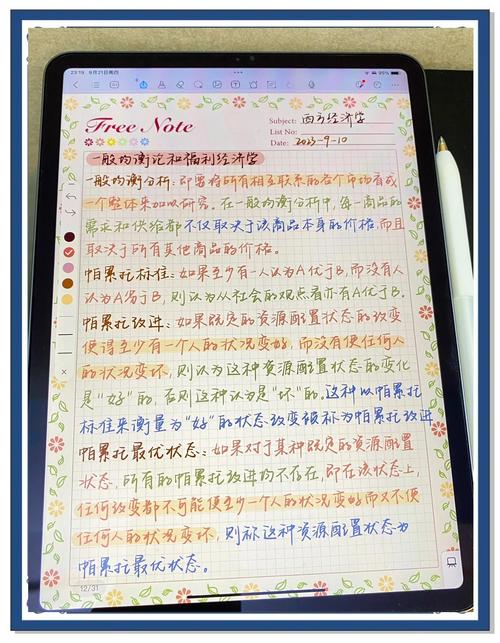 23:19 9月21日周四
95%
Free Note
Subject: 西方经济学
List No:
Date: 2023-9-10
一般均衡论和福利经济学
一般均衡分析：即要将所有相互联系的各个市场看成
一个整体来加以研究。在一般均衡分析中，每一商品的
需求和供给都不仅取决于该商品本身的价格，而且
取决于所有其他商品的价格。
帕累托标准：如果至少有一人认为A优于B，而没有人
认为A劣于B，则认为从社会的观点看亦有A优于B。
帕累托改进：如果既定的资源配置状态的改变
使得至少有一个人的状况变好，而没有使任何人
的状况变坏，则认为这种资源配置状态的变化
是“好”的，否则这种认为是“坏”的。这种以帕累托
标准来衡量为“好”的状态改变被称为帕累托改进
帕累托最优状态：如果对于某种既定的资源配置
状态，所有的帕累托改进均不存在，即在该状态上，
任何改变都不可能使至少一个人的状况变好而又不使
任何人的状况变坏，则称这种资源配置状态为
帕累托最优状态。
12/31